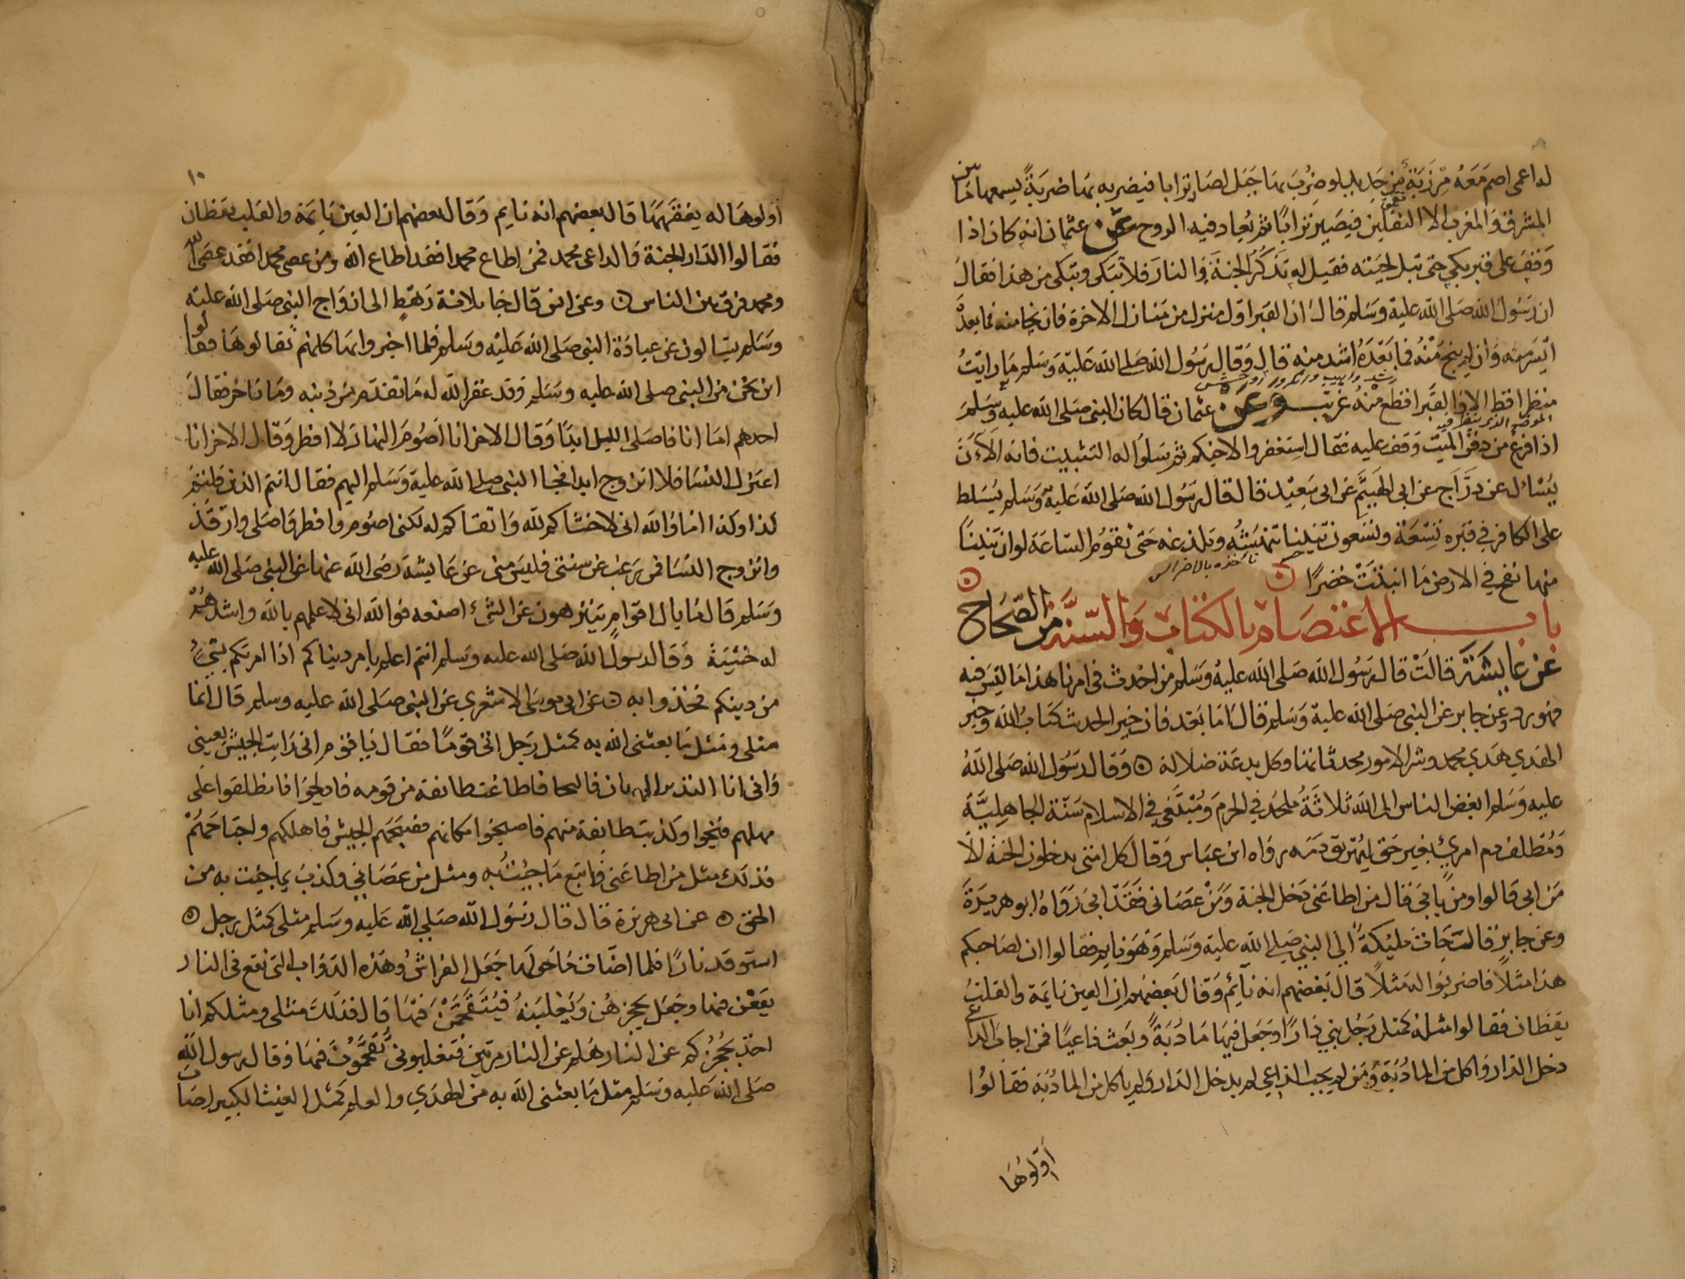 له اعمى اصم معه مرزبة من حديد لو ضرب بها جبل لصار ترابا فيضربه بها ضربة يسمعها ما بين
المشرق والمغرب الا الثقلين فيصير ترابا ثم يعاد فيه الروح عن عثمان انه كان اذا
وقف على قبر بكى حتى تبل لحيته فقيل له تذكر الجنة والنار فلا تبكى وتبكى من هذا فقال
ان رسول الله صلى الله عليه وسلم قال ان القبر اول منزل من منازل الاخرة فان نجا منه فما بعده
ايسر منه وان لم ينج منه فما بعده اشد منه قال وقال رسول الله صلى الله عليه وسلم ما رايت
منظرا قط الا والقبر افظع منه غريب وعن عثمان قال كان النبى صلى الله عليه وسلم
اذا فرغ من دفن الميت وقف عليه فقال استغفروا لاخيكم ثم سلوا له التثبيت فانه الآن
يسال عن دراج عن ابى الهيثم عن ابى سعيد قال قال رسول الله صلى الله عليه وسلم يسلط
على الكافر في قبره تسعة وتسعون تنينا تنهشه وتلدغه حتى تقوم الساعة لو ان تنينا
منها نفخ في الارض ما انبتت خضرا
باب الاعتصام بالكتاب والسنة من الصحاح
عن عايشة قالت قال رسول الله صلى الله عليه وسلم من احدث في امرنا هذا ما ليس فيه
فهو رد وعن جابر عن النبى صلى الله عليه وسلم قال اما بعد فان خير الحديث كتاب الله وخير
الهدي هدي محمد وشر الامور محدثاتها وكل بدعة ضلالة وقال رسول الله صلى الله
عليه وسلم ابغض الناس الى الله ثلاثة ملحد في الحرم ومبتغى في الاسلام سنة الجاهلية
ومطلب دم امرئ بغير حق ليهريق دمه رواه ابن عباس وقال كل امتى يدخلون الجنة الا
من ابى قالوا ومن يابى قال من اطاعنى دخل الجنة ومن عصانى فقد ابى رواه ابو هريرة
وعن جابر قال جات مليكة الى النبى صلى الله عليه وسلم وهو نايم فقالوا ان لصاحبكم
هذا مثلا فاضربوا له مثلا قال بعضهم انه نائم وقال بعضهم ان العين نايمة والقلب
يقظان فقالوا مثله كمثل رجل بنى دارا وجعل فيها مادبة وبعث داعيا فمن اجاب الداعى
دخل الدار واكل من المادبة ومن لم يجب الداعي لم يدخل الدار ولم ياكل من المادبة فقالوا
اولوها
١٠
اولوها له يفقهها قال بعضهم انه نايم وقال بعضهم ان العين نايمة والقلب يقظان
فقالوا الدار الجنة والداعى محمد فمن اطاع محمدا فقد اطاع الله ومن عصى محمدا فقد عصى الله
ومحمد فرق بين الناس وعن انس قال جا ثلاثة رهط الى ازواج النبى صلى الله عليه
وسلم يسالون عن عبادة النبى صلى الله عليه وسلم فلما اخبروا بها كانهم تقالوها فقالوا
اين نحن من النبى صلى الله عليه وسلم وقد غفر الله له ما تقدم من ذنبه وما تاخر فقال
احدهم اما انا فاصلى الليل ابدا وقال الاخر انا اصوم النهار لا افطر وقال الاخر انا
اعتزل النسا فلا اتزوج ابدا فجا النبى صلى الله عليه وسلم اليهم فقال انتم الذين قلتم
كذا وكذا اما والله انى لاخشاكم لله واتقاكم له لكنى اصوم وافطر واصلى وارقد
واتزوج النسا فمن رغب عن سنتى فليس منى عن عايشة رضى الله عنها عن النبى صلى الله عليه
وسلم قال ما بال اقوام يتنزهون عن الشئ اصنعه فوالله انى لاعلمهم بالله واشدهم
له خشية وقال رسول الله صلى الله عليه وسلم انتم اعلم بامر دنياكم اذا امرتكم بشئ
من دينكم فخذوا به عن ابى موسى الاشعري عن النبى صلى الله عليه وسلم قال انما
مثلى ومثل ما بعثنى الله به كمثل رجل اتى قوما فقال يا قوم انى رايت الجيش بعينى
وانى انا النذير العريان فالنجا فاطاعت طائفة من قومه فادلجوا فانطلقوا على
مهلهم فنجوا وكذبت طايفة منهم فاصبحوا مكانهم فصبحهم الجيش فاهلكهم واجتاحهم
فذلك مثل من اطاعنى واتبع ما جئت به ومثل من عصانى وكذب بما جئت به من
الحق عن ابى هريرة قال قال رسول الله صلى الله عليه وسلم مثلى كمثل رجل
استوقد نارا فلما اضات ما حولها جعل الفراش وهذه الدواب التى تقع في النار
يقعن فيها وجعل يحجزهن ويغلبنه فيتقحمن فيها قال فذلك مثلى ومثلكم انا
اخذ بحجزكم عن النار هلم عن النار مرتين فتغلبونى تقحمون فيها وقال رسول الله
صلى الله عليه وسلم مثل ما بعثنى الله به من الهدي والعلم كمثل الغيث الكبير اصاب